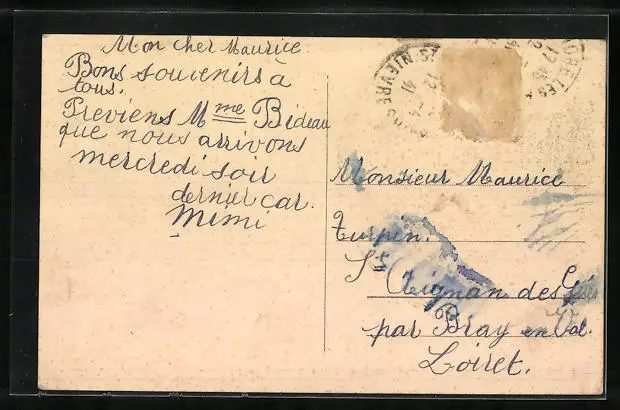 Mon cher Maurice
Bons souvenirs à
tous.
Previens Mme Bideau
que nous arrivons
mercredi soir
dernier car.
Mimi
NIEVRE
Monsieur Maurice
Turpin.
S Tignan des
par Bray en Val.
Loiret.